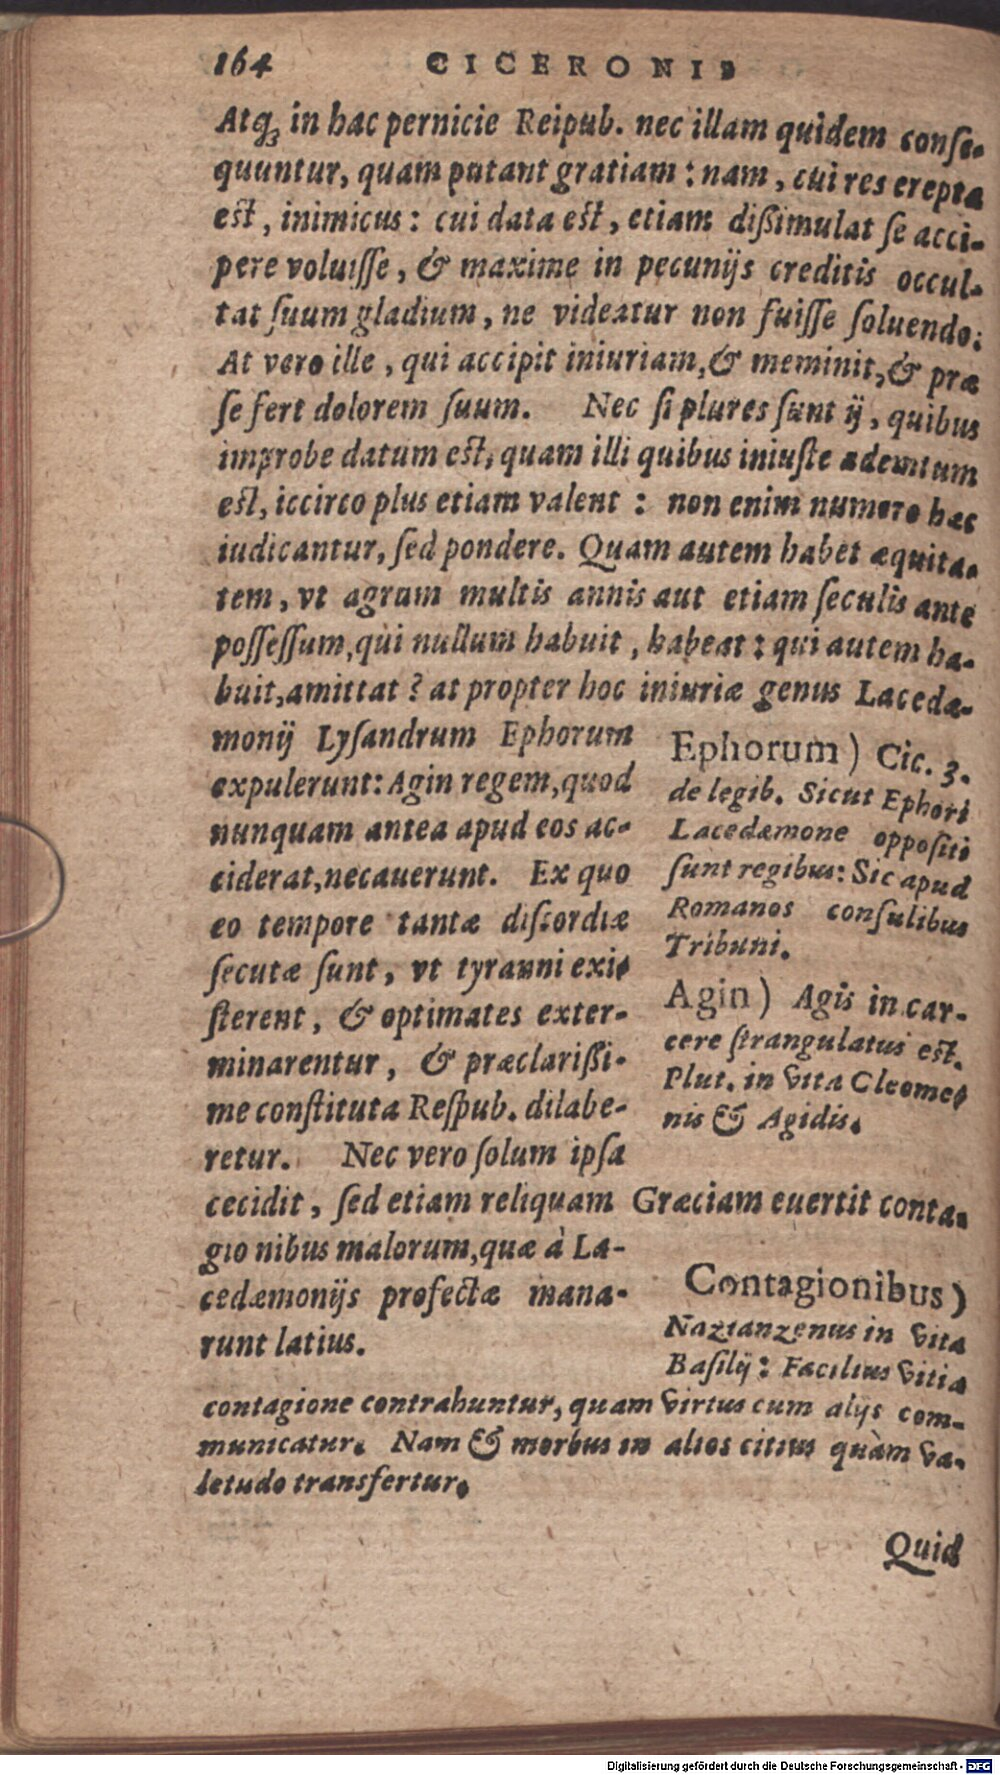 164 CICERONIS
Atq; in hac pernicie Reipub. nec illam quidem conse-
quuntur, quam putant gratiam: nam, cui res erepta
est, inimicus: cui data est, etiam dißimulat se acci-
pere voluisse, & maxime in pecunijs creditis occul-
tat suum gladium, ne videatur non fuisse soluendo:
At vero ille, qui accipit iniuriam, & meminit, & præ
se fert dolorem suum. Nec si plures sunt ij, quibus
improbe datum est, quam illi quibus iniuste ademtum
est, iccirco plus etiam valent: non enim numero hæc
iudicantur, sed pondere. Quam autem habet æquita-
tem, vt agrum multis annis aut etiam seculis ante
possessum, qui nullum habuit, habeat: qui autem ha-
buit, amittat? at propter hoc iniuriæ genus Lacedæ-
monij Lysandrum Ephorum
expulerunt: Agin regem, quod
nunquam antea apud eos ac-
ciderat, necauerunt. Ex quo
eo tempore tantæ discordiæ
secutæ sunt, vt tyranni exi-
sterent, & optimates exter-
minarentur, & præclarißi-
me constituta Respub. dilabe-
retur. Nec vero solum ipsa
Ephorum) Cic. 3.
de legib. Sicut Ephori
Lacedæmone oppositi
sunt regibus: Sic apud
Romanos consulibus
Tribuni.
Agin) Agis in car-
cere strangulatus est.
Plut. in vita Cleome-
nis & Agidis.
cecidit, sed etiam reliquam Græciam euertit conta-
gio nibus malorum, quæ à La-
cedæmonijs profectæ mana-
runt latius.
Contagionibus)
Nazianzenus in vita
Basilij: Facilius vitia
contagione contrahuntur, quam virtus cum alijs com-
municatur. Nam & morbus in alios citius quàm va-
letudo transfertur.
Quid
Digitalisierung gefördert durch die Deutsche Forschungsgemeinschaft - DFG